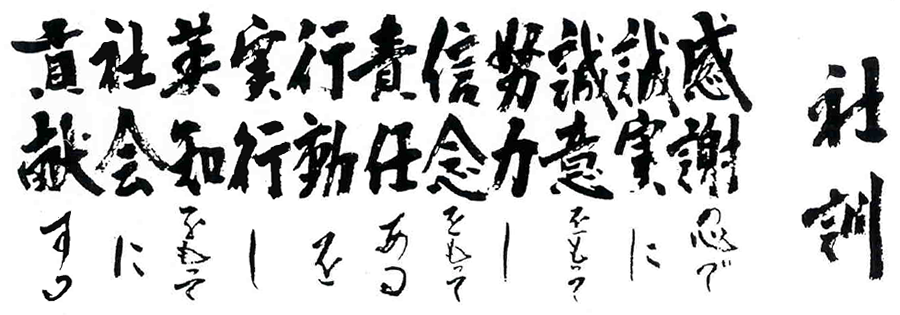 社訓
感謝の心で
誠実に
誠意をもって
努力し
信念をもって
責任ある
行動を
実行し
英知をもって
社会に
貢献する